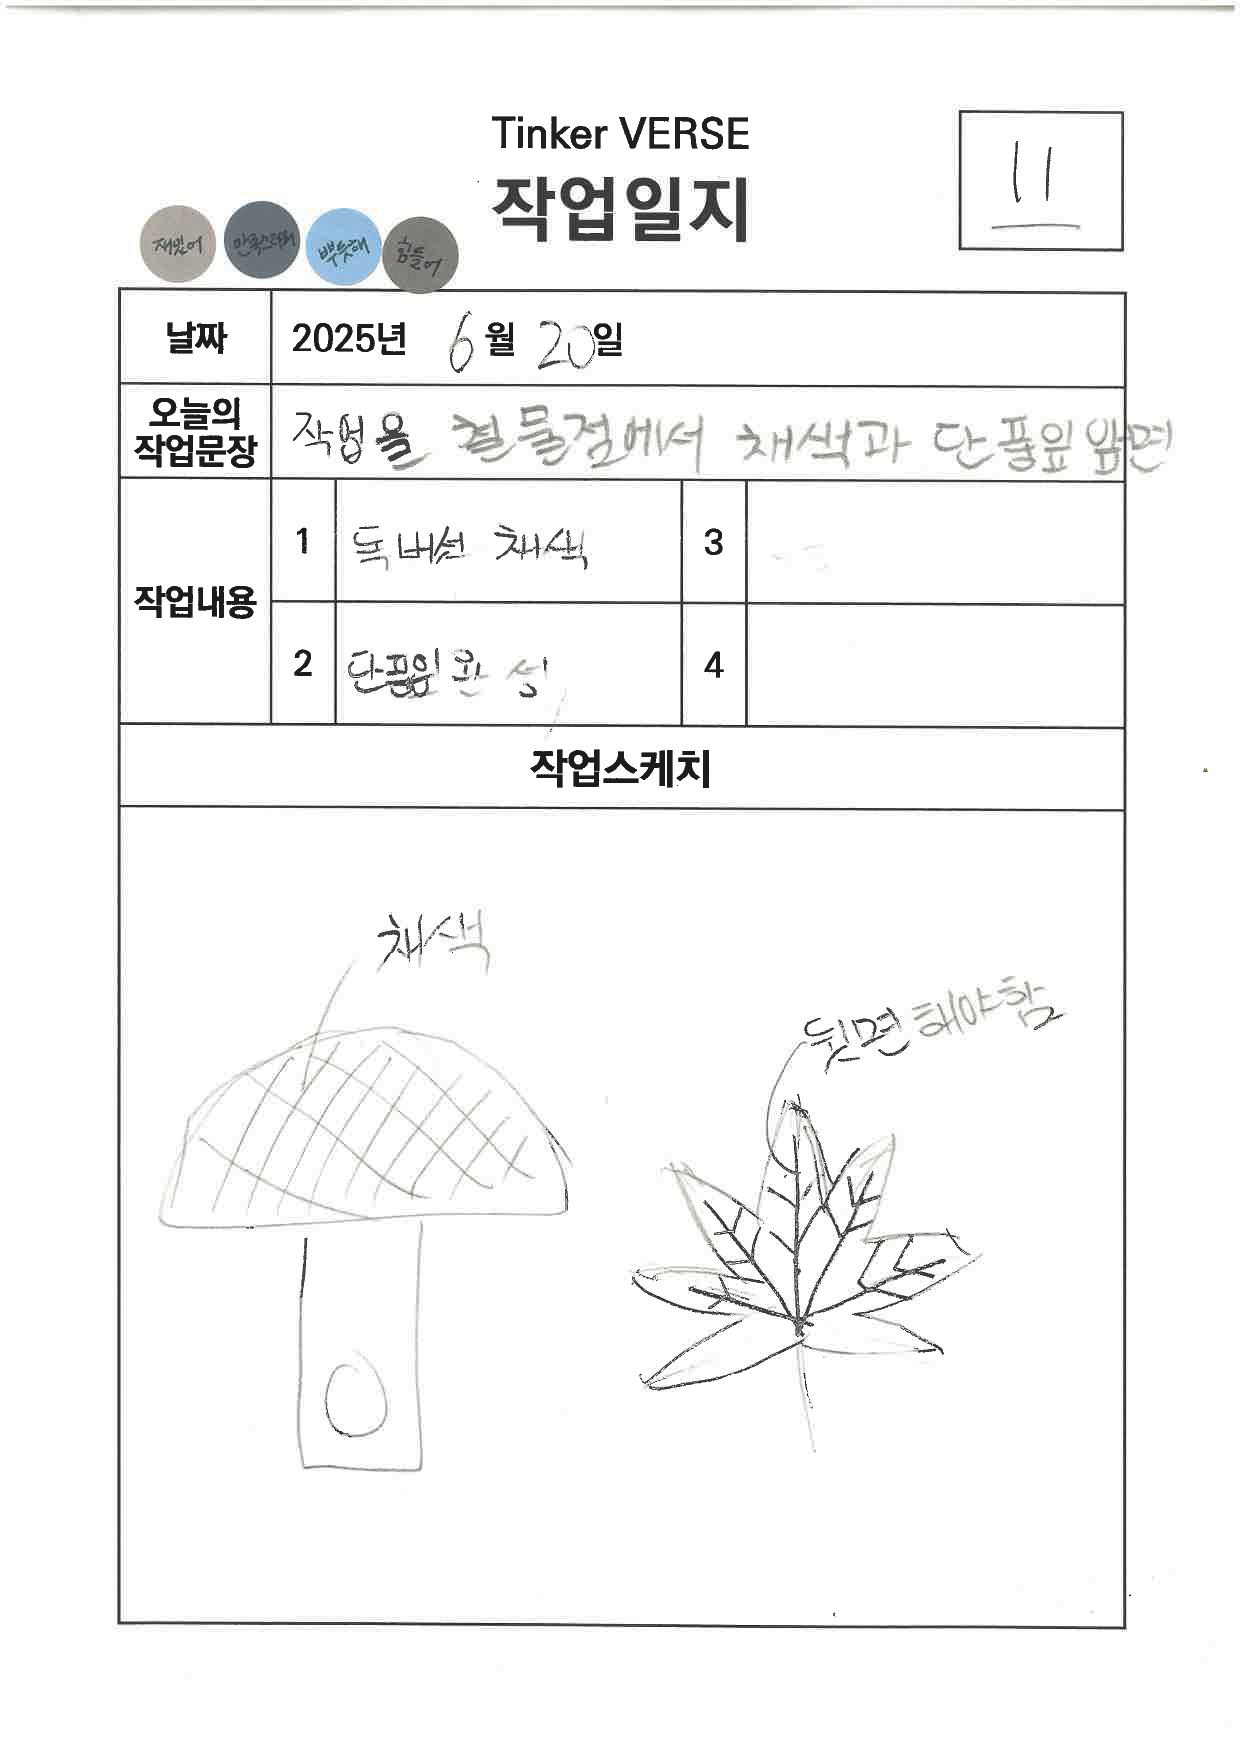 Tinker VERSE
작업일지
11
재밌어 만족스러워 뿌듯해 힘들어
날짜 2025년 6월 20일
오늘의 작업문장 작업을 에서 채색과 단풍잎 앞면
작업내용
1 독버섯 채색 3
2 단풍잎 완성 4
작업스케치
채색
뒷면 해야함